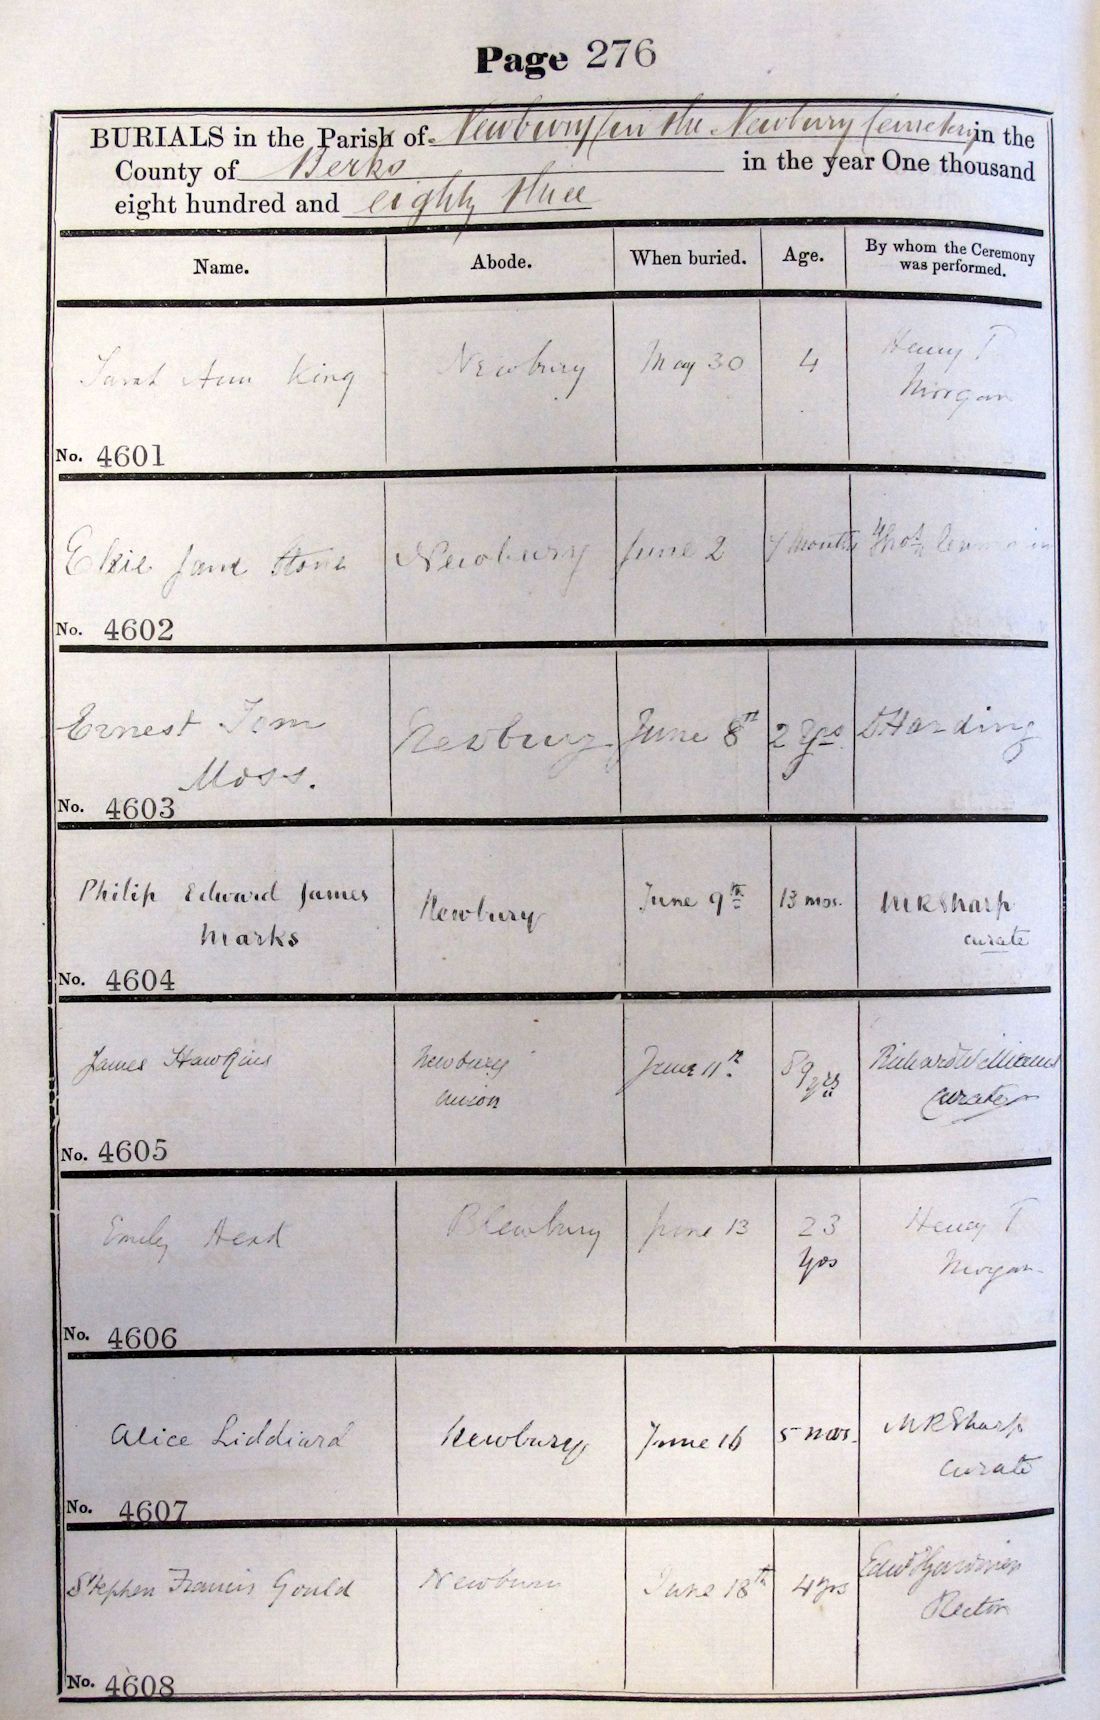 Page 276
BURIALS in the Parish of Newbury (in the Newbury Cemetery in the
County of Berks in the year One thousand
eight hundred and eighty three
Name. Abode. When buried. Age. By whom the Ceremony was performed.
Sarah Ann King Newbury May 30 4 Henry T
Morgan
No. 4601
Elsie Jane Stone Newbury June 2 7 months Thos
No. 4602
Ernest Tom Newbury. June 8th 2 yrs. Harding
Moss.
No. 4603
Philip Edward James Newbury June 9th 13 mos. MRSharp
Marks curate
No. 4604
James Hawkins Newbury June 11th 89 yrs Richard Williams
Union Curate
No. 4605
Emily Head Blewbury June 13 23 Henry T
Yrs Morgan
No. 4606
Alice Liddiard Newbury June 16 5 mos. MRSharp
curate
No. 4607
Stephen Francis Gould Newbury June 18th 4 yrs Edwd Gardiner
Rector
No. 4608